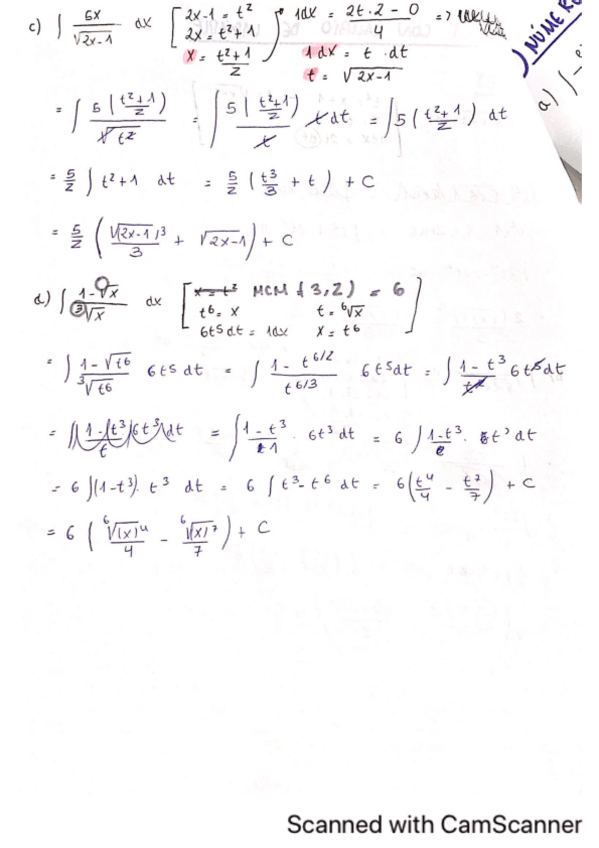 c) ∫ 5x/√2x-1 dx [2x-1 = t² 2x = t²+1 x = t²+1/2] 1dx = 2t·2-0/4 =>
1 dx = t · dt
t = √2x-1
) NÚMER
a) ∫
= ∫ 5(t²+1/2)/√t² = ∫ 5(t²+1/2)/t t dt = ∫ 5(t²+1/2) dt
= 5/2 ∫ t²+1 dt = 5/2 (t³/3 + t) + C
= 5/2 (√(2x-1)³/3 + √2x-1) + C
d) ∫ 1-√x/³√x dx [x = t² MCM (3,2) = 6
t⁶ = x t = ⁶√x
6t⁵dt = 1dx x = t⁶]
= ∫ 1-√t⁶/³√t⁶ 6t⁵ dt = ∫ 1-t^6/2/t^6/3 6t⁵dt = ∫ 1-t³/t² 6t⁵dt
= ∫ 1-t³/1 · 6t³ dt = 6 ∫ 1-t³ · t³ dt
= 6 ∫(1-t³)· t³ dt = 6 ∫ t³-t⁶ dt = 6(t⁴/4 - t⁷/7) + C
= 6 (⁶√(x)⁴/4 - ⁶√(x)⁷/7) + C
Scanned with CamScanner